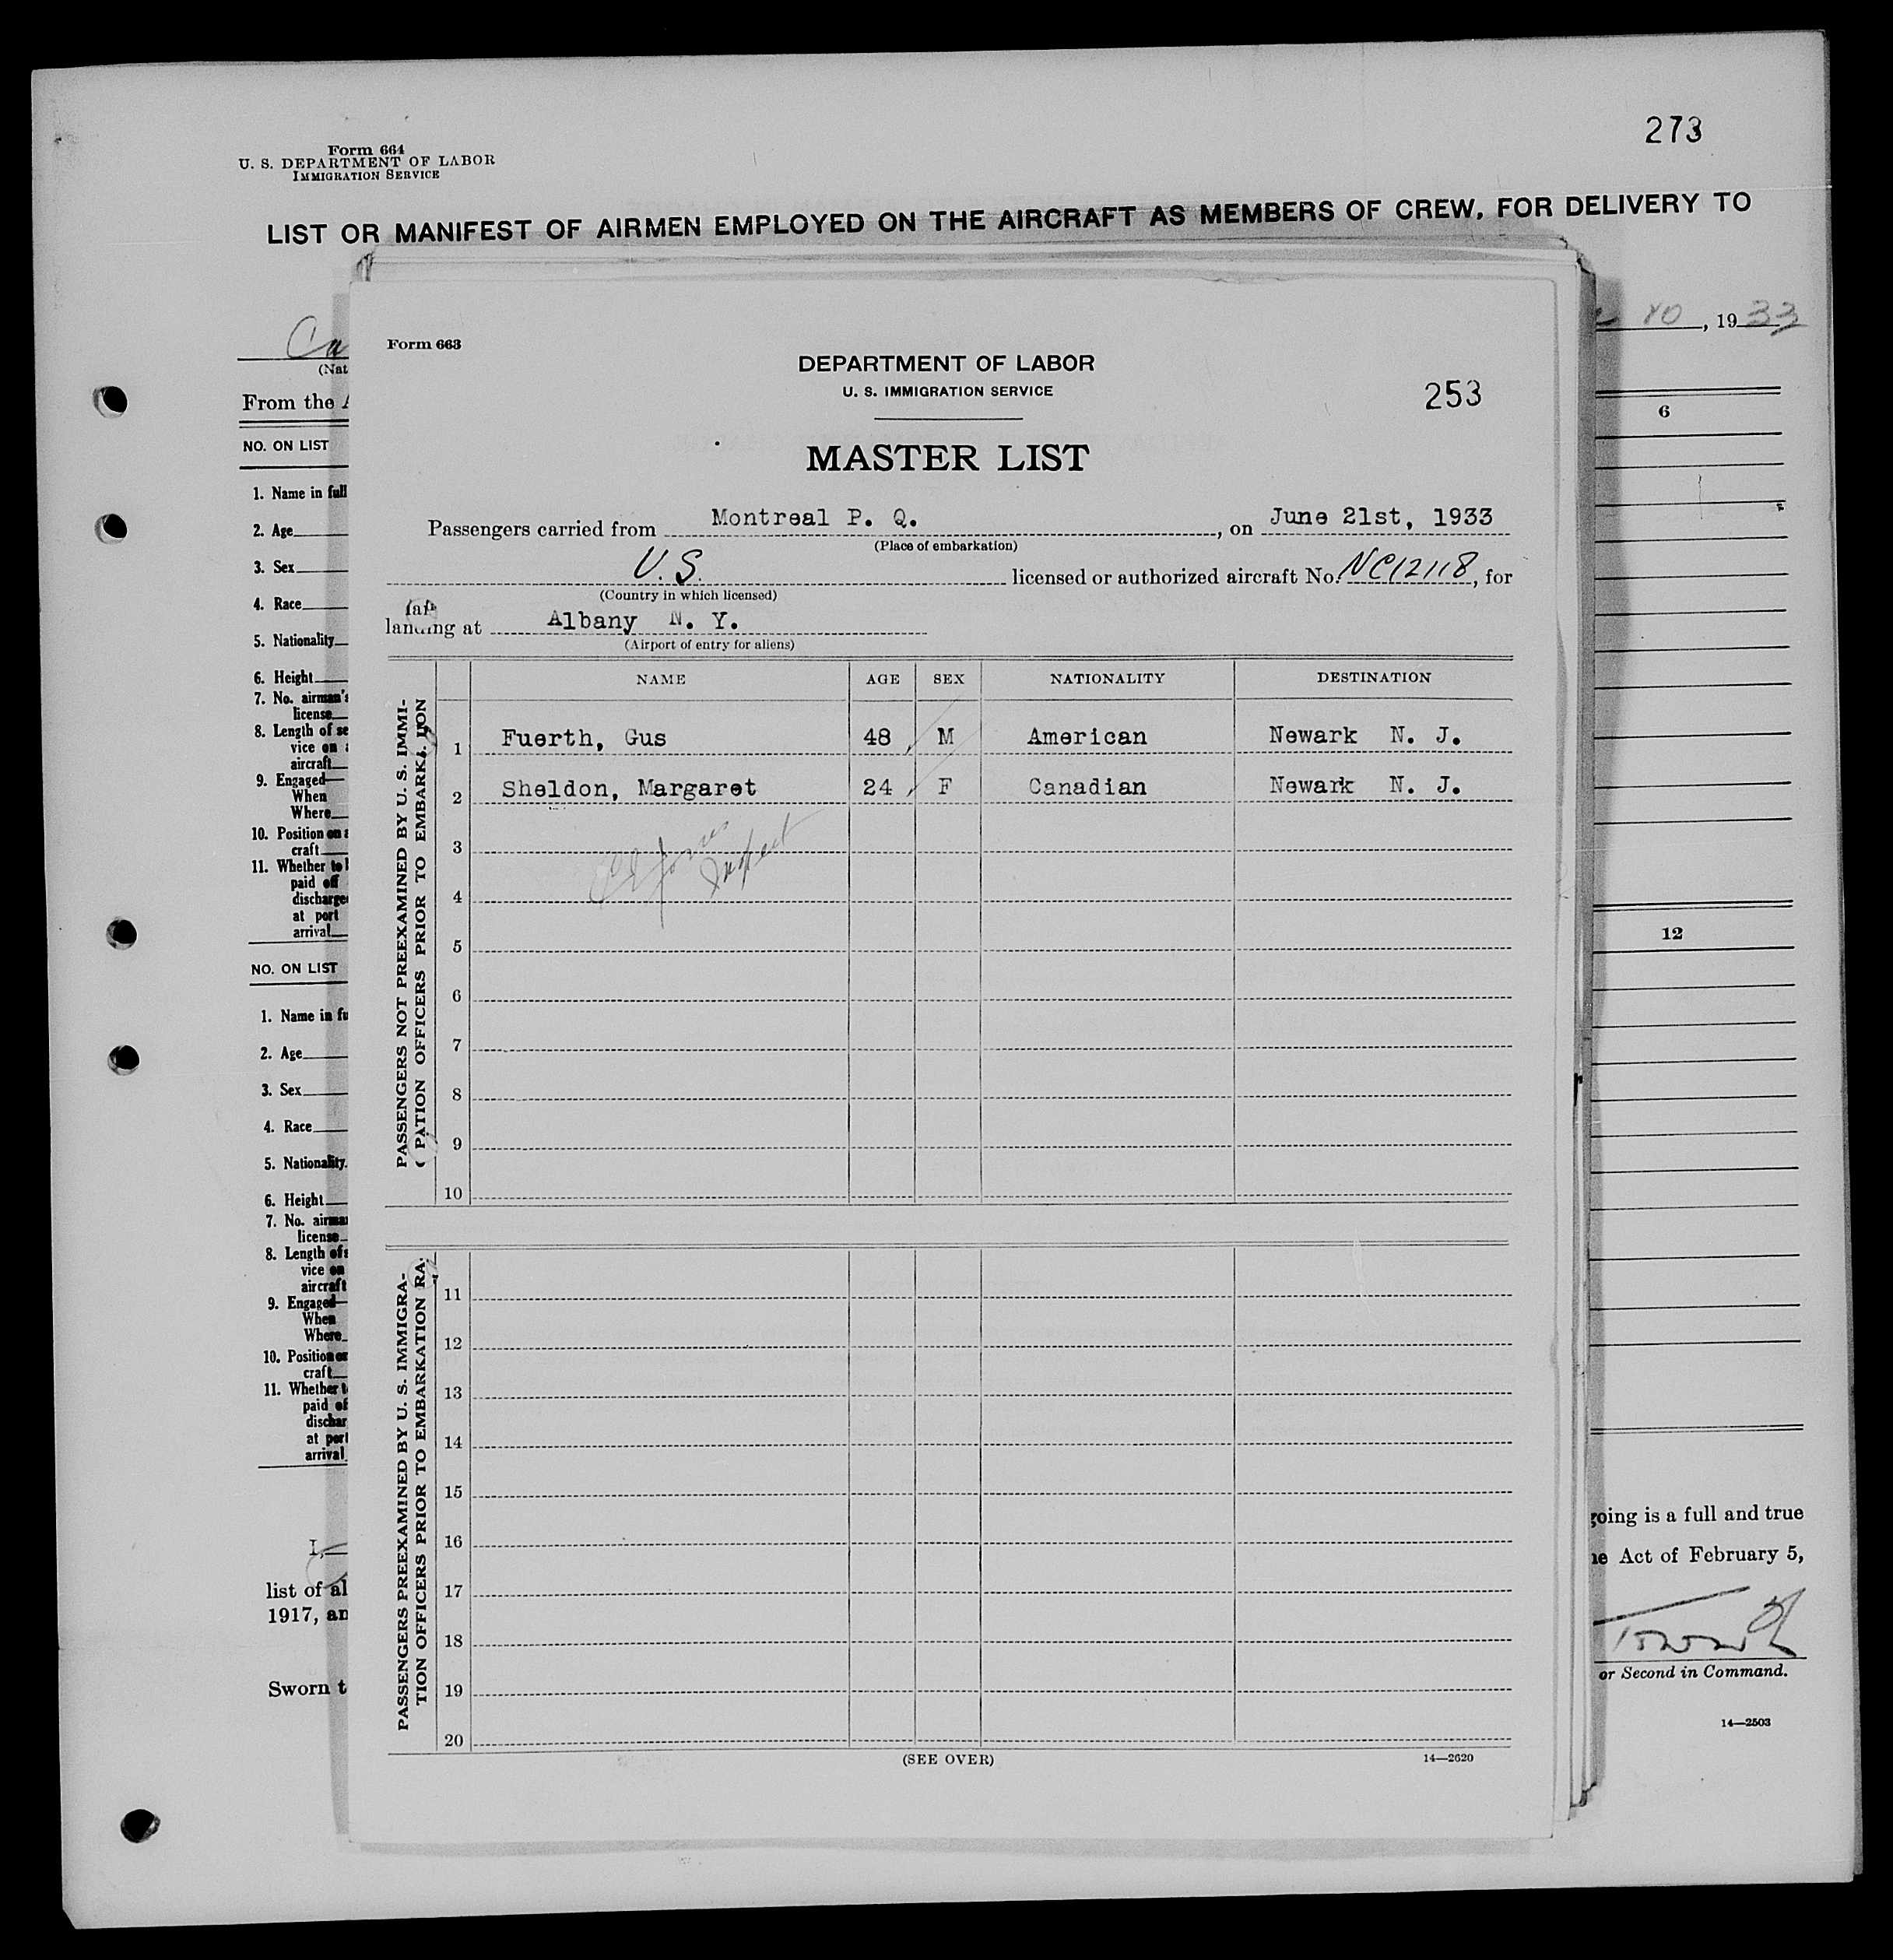 273
Form 664
U. S. DEPARTMENT OF LABOR
IMMIGRATION SERVICE
LIST OR MANIFEST OF AIRMEN EMPLOYED ON THE AIRCRAFT AS MEMBERS OF CREW, FOR DELIVERY TO
10, 1933
(Nat
From the A
NO. ON LIST
6
1. Name in full
2. Age
3. Sex
4. Race
5. Nationality
6. Height
7. No. airman's
license
8. Length of se
vice on a
aircraft
9. Engaged—
When
Where
10. Position on a
craft
11. Whether to b
paid off
discharge
at port
arrival
NO. ON LIST
12
1. Name in fu
2. Age
3. Sex
4. Race
5. Nationality
6. Height
7. No. airma
license
8. Length of s
vice on
aircraft
9. Engaged—
When
Where
10. Position on
craft
11. Whether t
paid of
dischar
at port
arrival
I,
going is a full and true
list of al
he Act of February 5,
1917, an
or Second in Command.
Sworn t
14—2503
Form 663
DEPARTMENT OF LABOR
U. S. IMMIGRATION SERVICE
253
MASTER LIST
Passengers carried from Montreal P. Q., on June 21st, 1933
(Place of embarkation)
U.S. licensed or authorized aircraft No. NC12118, for
(Country in which licensed)
landing at Albany N. Y.
(Airport of entry for aliens)
NAME AGE SEX NATIONALITY DESTINATION
PASSENGERS NOT PREEXAMINED BY U. S. IMMI-
PATION OFFICERS PRIOR TO EMBARKA ION
1 Fuerth, Gus 48 M American Newark N. J.
2 Sheldon, Margaret 24 F Canadian Newark N. J.
3
4
5
6
7
8
9
10
PASSENGERS PREEXAMINED BY U. S. IMMIGRA-
TION OFFICERS PRIOR TO EMBARKATION RA
11
12
13
14
15
16
17
18
19
20
(SEE OVER)
14—2620